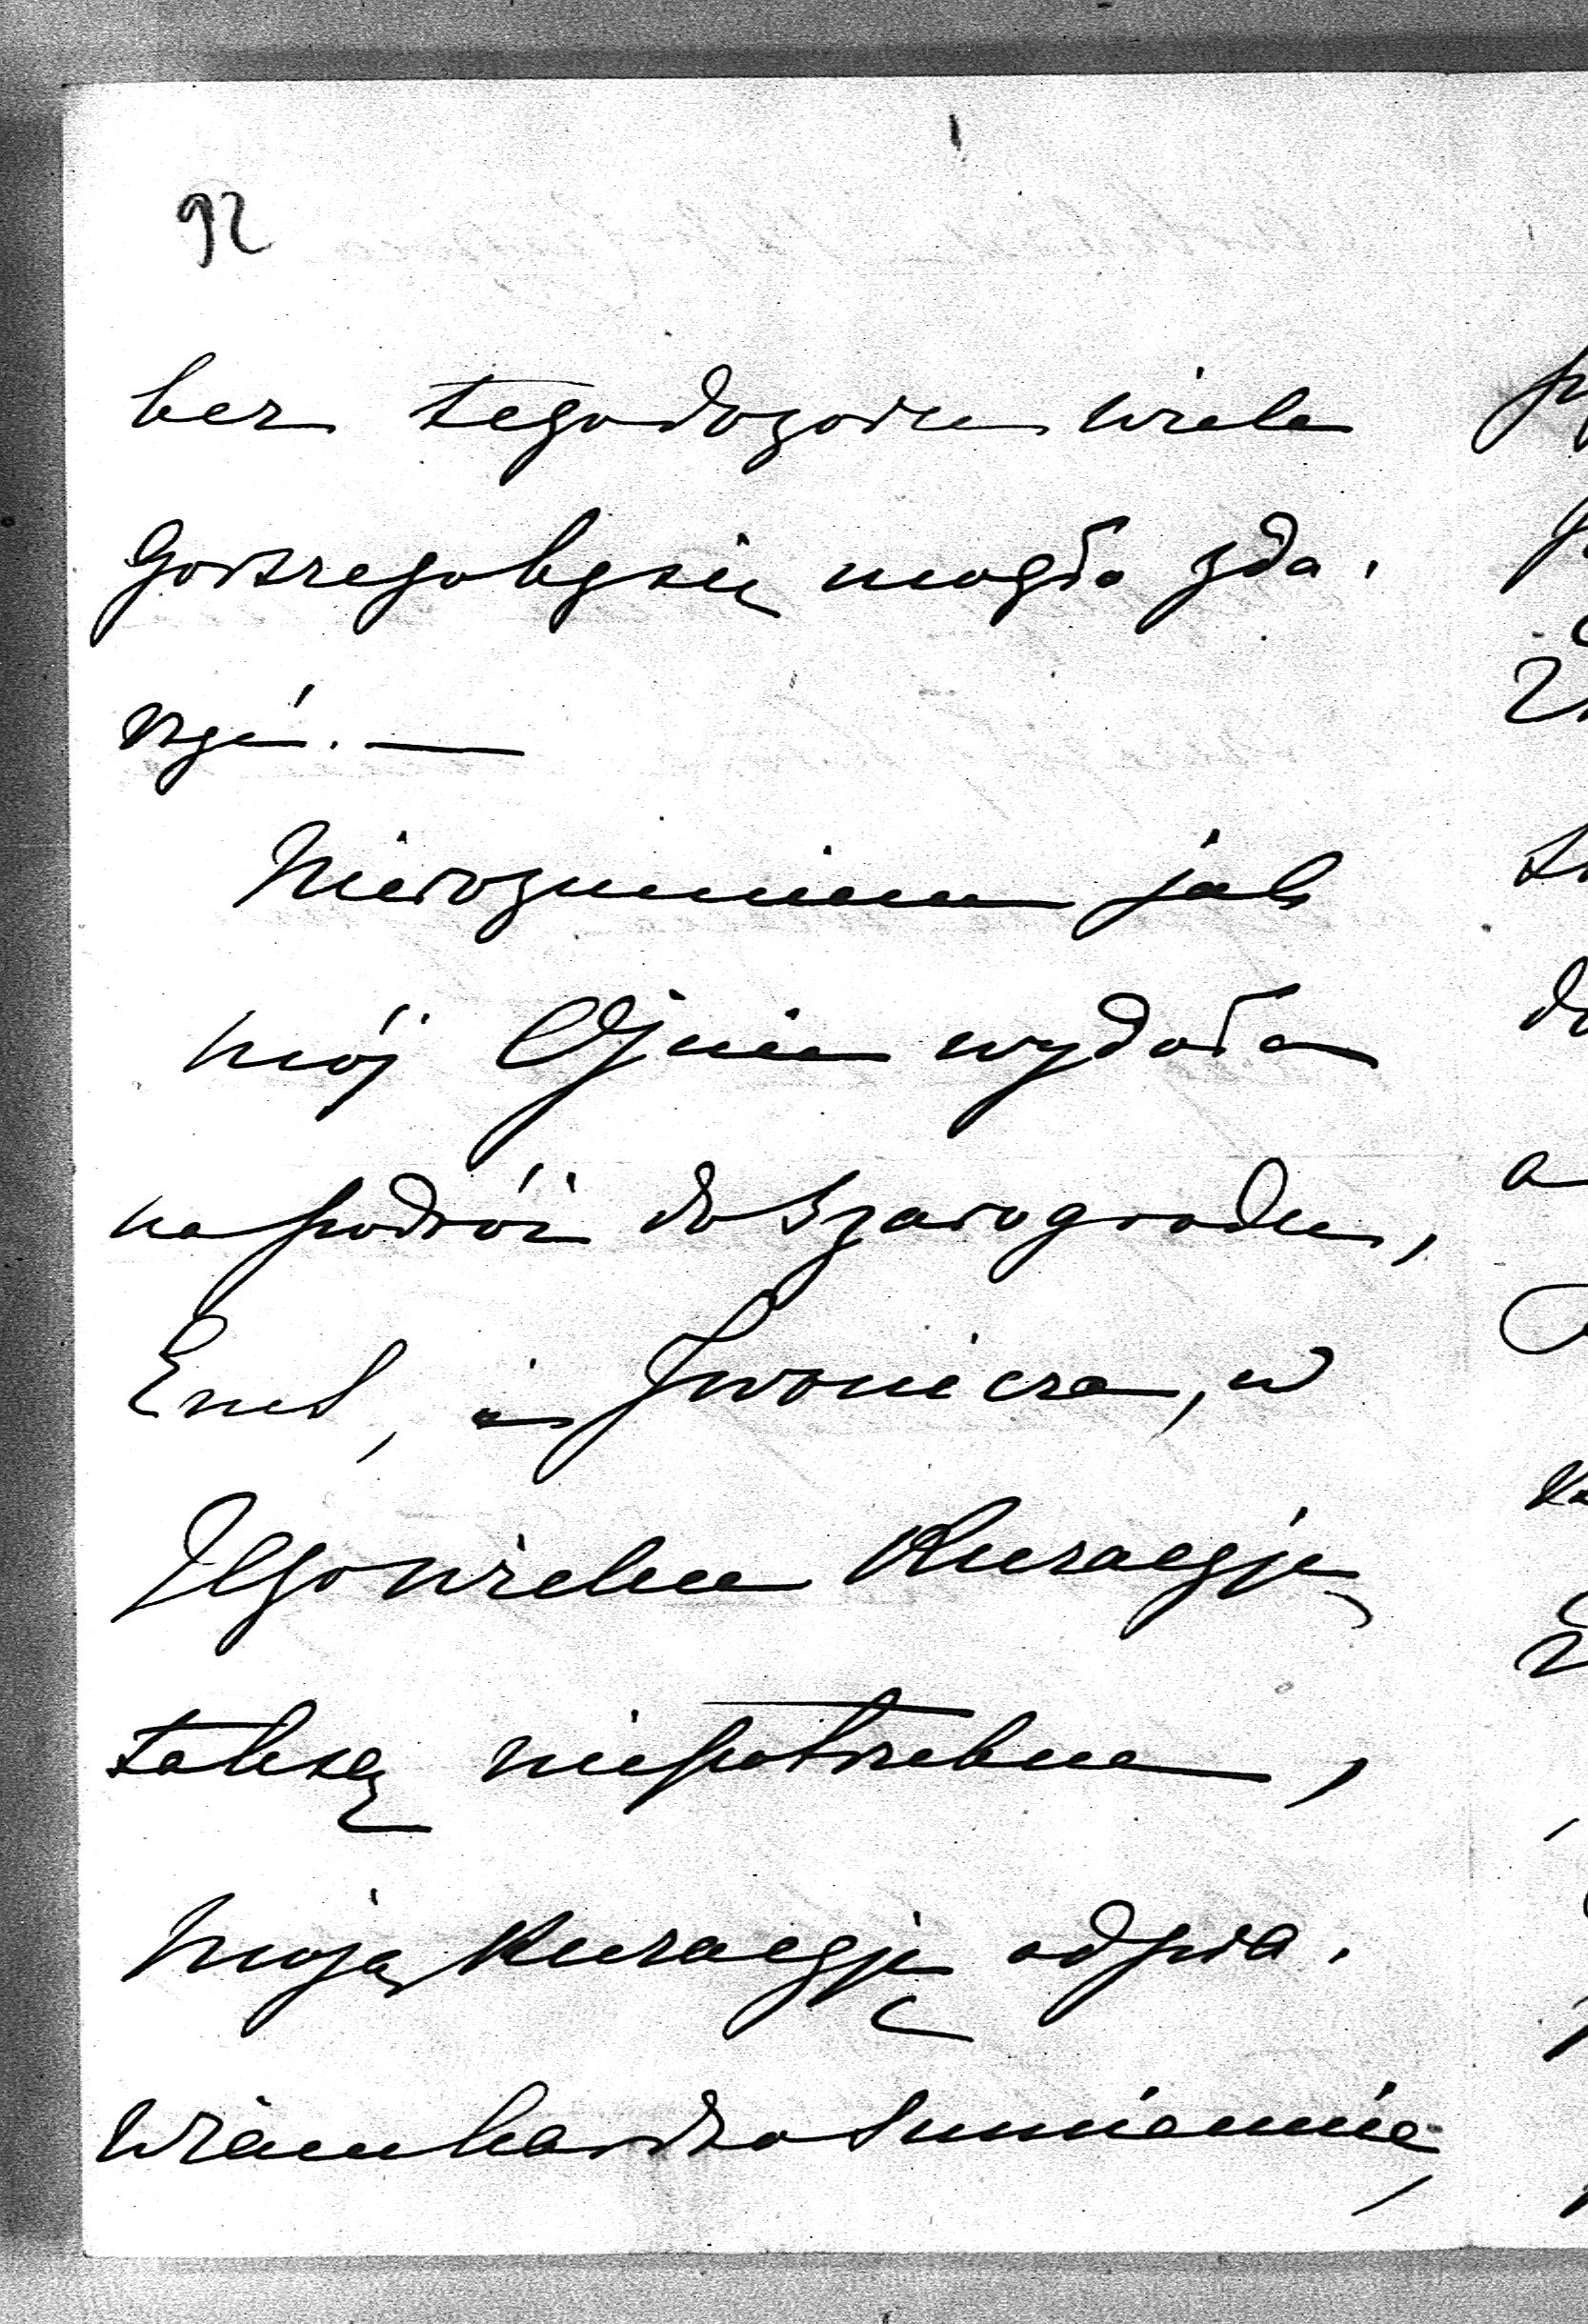 92
bez tego dozoru wiele
gorszego by się mogło zda.
rzyć. —
Nie rozumiem jak
mój Ojciec wydoła
na podróż do Szarogrodu,
Ems, i Iwonicza, w
Jego wieku kuracyje
tak są niepotrzebne,
moją kuracyję odpra.
wiam bardzo sumiennie,